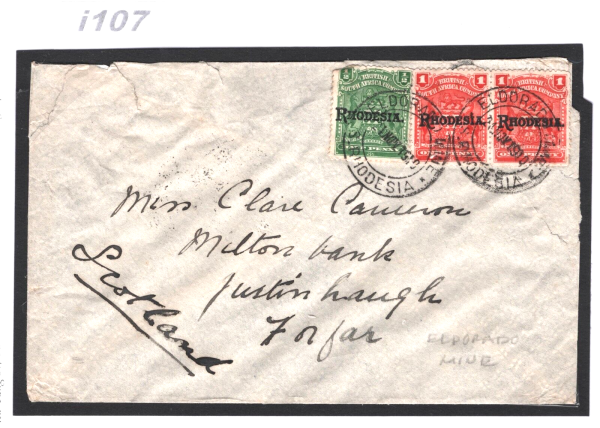 i107
BRITISH
SOUTH AFRICA COMPANY
RHODESIA.
PENNY
1 BRITISH 1
SOUTH AFRICA COMPANY
RHODESIA.
ONE PENNY
1 BRITISH 1
SOUTH AFRICA COMPANY
RHODESIA.
ONE PENNY
ELDORADO
RHODESIA
ELDORADO
RHODESIA
Miss Clare Cameron
Milton bank
Justinhaugh
Forfar
Scotland
ELDORADO
MINE